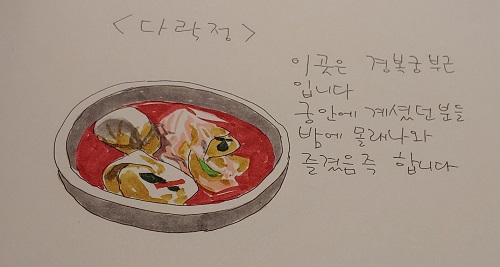 <다락정>
이곳은 경복궁부근
입니다
궁안에 계셨던분들
밤에 몰래나와
즐겼음즉 합니다